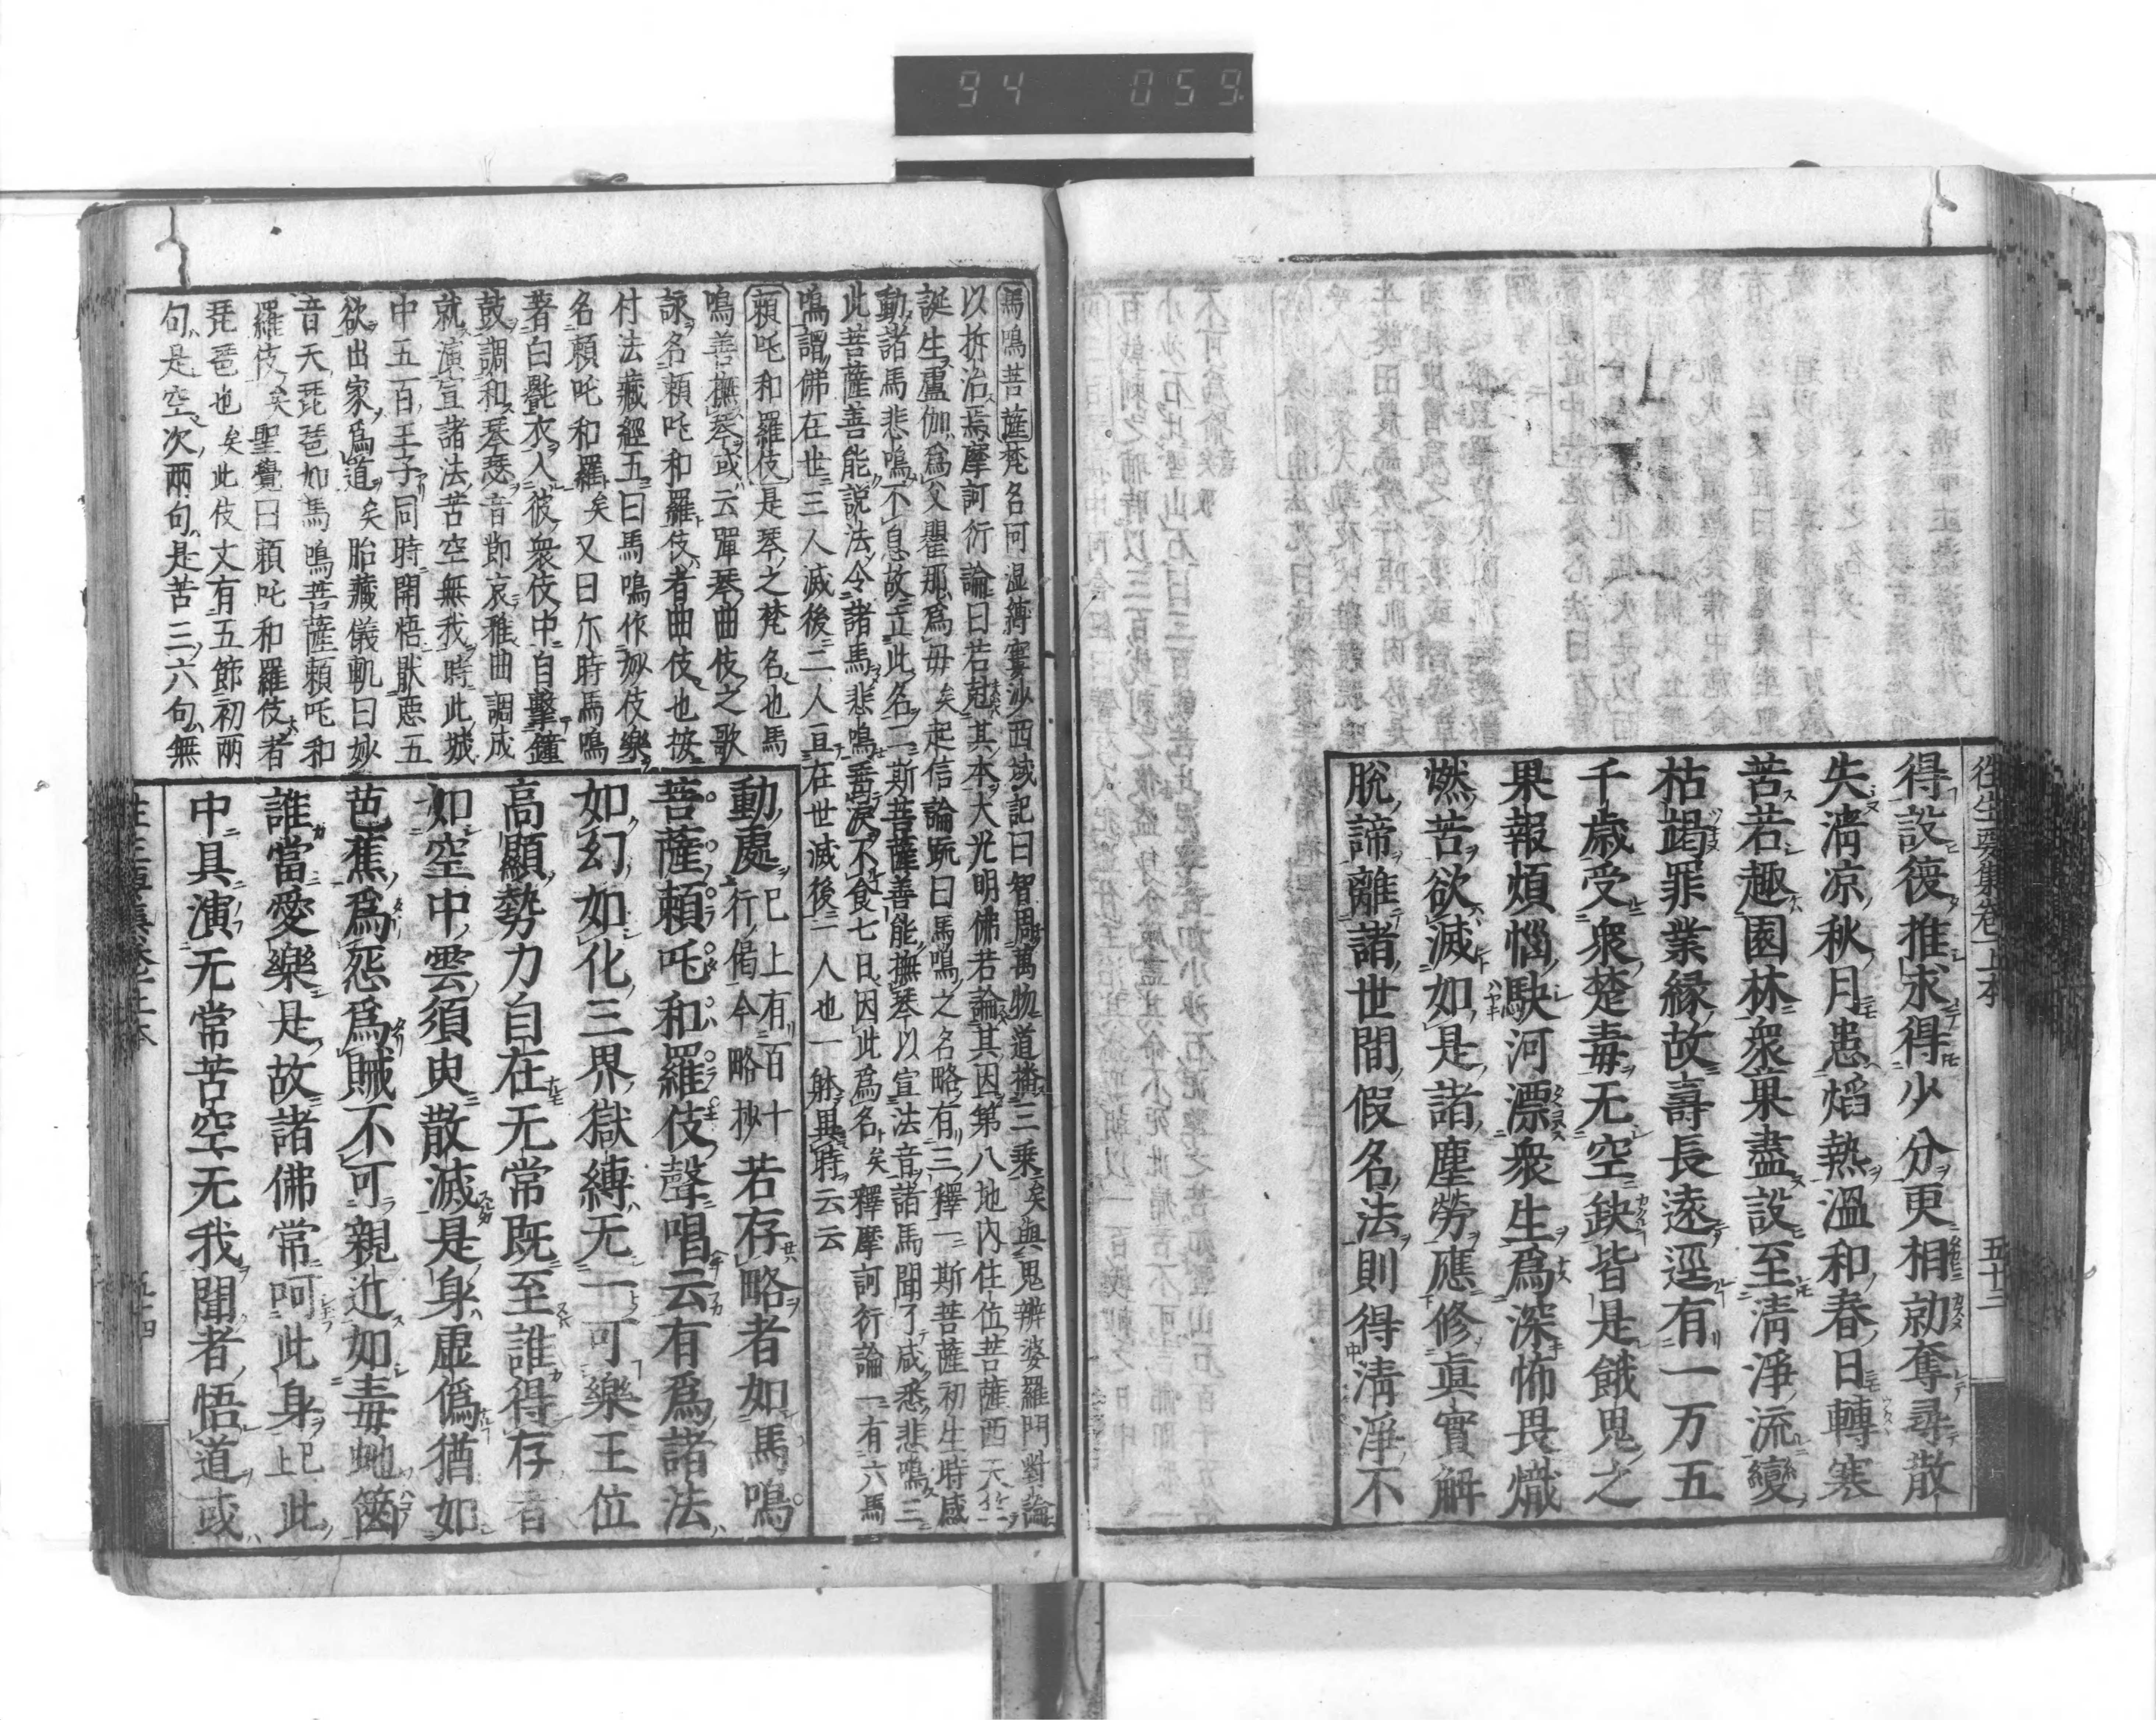 94 059
往生要集卷上本 五十三
得設復推求得少分更相劫奪尋散
失淸凉秋月患焰熱溫和春日轉寒
苦若趣園林衆果盡設至淸淨流變
枯竭罪業緣故壽長遠逕有一万五
千歲受衆楚毒无空缺皆是餓鬼之
果報煩惱駃河漂衆生爲深怖畏熾
燃苦欲滅如是諸塵勞應修眞實解
脫諦離諸世間假名法則得淸淨不
馬鳴菩薩梵名阿湿縛窶沙西域記曰智周萬物道播三乘矣與鬼辨婆羅門對論
以拆治焉摩訶衍論曰若尅其本大光明佛若論其因第八地內住位菩薩西天竺
誕生盧伽爲父瞿那爲母矣起信論疏曰馬鳴之名略有三釋一斯菩薩初生時感
動諸馬悲鳴不息故立此名二斯菩薩善能撫琴以宣法音諸馬聞了咸悉悲鳴三
此菩薩善能說法令諸馬悲鳴垂淚不食七日因此爲名矣釋摩訶衍論一有六馬
鳴謂佛在世三人滅後二人亘在世滅後一人也一躰異時云云
頼吒和羅伎是琴之梵名也馬
鳴善撫琴或云彈琴曲伎之歌
詠名頼吒和羅伎者曲伎也按
付法藏經五曰馬鳴作妙伎樂
名頼吒和羅矣又曰尓時馬鳴
著白氎衣入彼衆伎中自擊鐘
鼓調和琴瑟音節哀雅曲調成
就演宣諸法苦空無我時此城
中五百王子同時開悟猒惡五
欲出家爲道矣胎藏儀軌曰妙
音天琵琶如馬鳴菩薩頼吒和
羅伎矣聖覺曰頼吒和羅伎者
琵琶也矣此伎丈有五節初兩
句是空次兩句是苦三六句無
動處已上有百十行偈今略抄若存略者如馬鳴
菩薩頼吒和羅伎聲唱云有爲諸法
如幻如化三界獄縛无一可樂王位
高顯勢力自在无常既至誰得存者
如空中雲須臾散滅是身虛僞猶如
芭蕉爲怨爲賊不可親近如毒虵篋
誰當愛樂是故諸佛常呵此身已上此
中具演无常苦空无我聞者悟道或